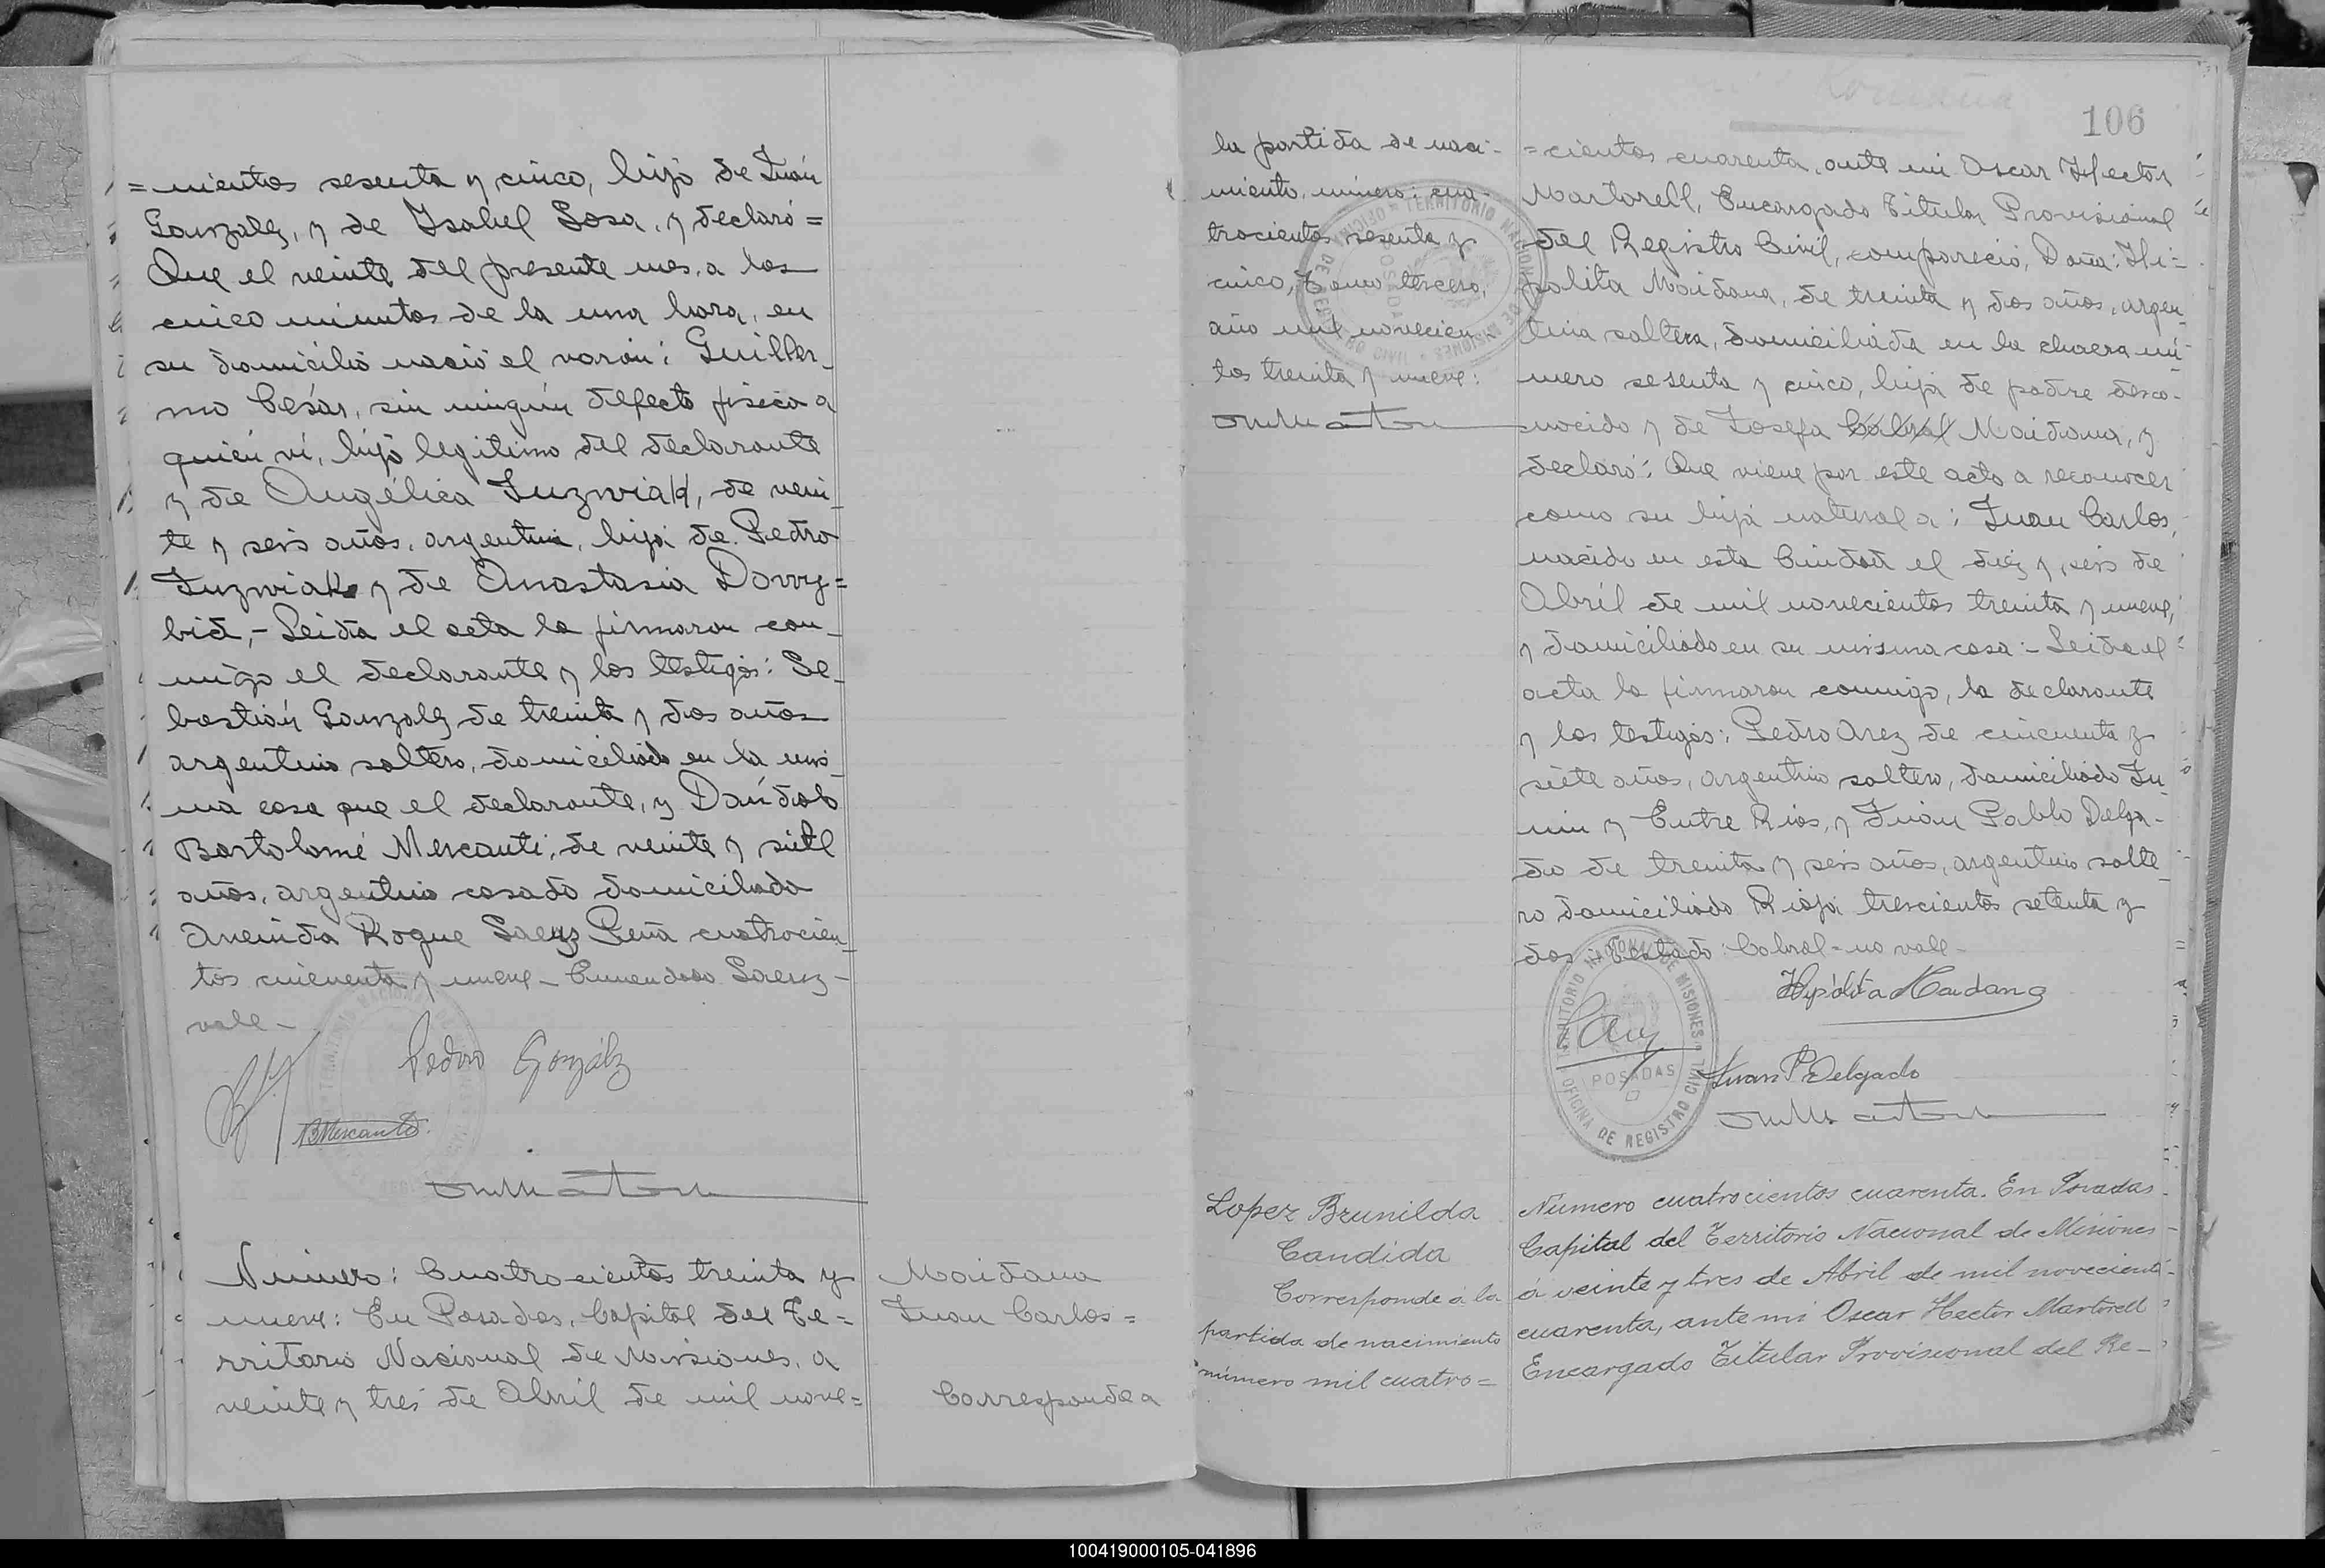 =nientos sesenta y cinco, hijo de Juan
Gonzalez, y de Ysabel Sosa, y declaró=
Que el veinte del presente mes, a los
cinco minutos de la una hora, en
su domicilio nació el varón: Guiller-
mo César, sin ningún defecto fisico a
quién ví, hijo legitimo del declarante
y de Angélica Luzwiak, de vein-
te y seis años, argentina, hija de Pedro
Luzwiak y de Anastasia Dowy=
bid,- Leida el acta la firmaron con-
migo el declarante y los testigos: Se-
bastián Gonzalez de treinta y dos años
argentino soltero, domiciliado en la mis-
ma casa que el declarante, y Dándolo
Bartolomé Mercanti, de veinte y siete
años, argentino casado domiciliado
Avenida Roque Saenz Peña cuatrocien-
tos cincuenta y nueve - Enmendado Saenz-
vale-
Pedro González
BMercanti
Número: Cuatrocientos treinta y
nueve: En Posadas, Capital del Te=
rritorio Nacional de Misiones, a
veinte y tres de Abril de mil nove=
Maidana
Juan Carlos=
Corresponde a
106
la partida de naci-
miento, número: cua-
trocientos sesenta y
cinco, Tomo tercero,
año mil novecien-
tos treinta y nueve:
TERRITORIO NACIONAL DE MISIONES
=cientos cuarenta, ante mi Oscar Hector
Martorell, Encargado Titular Provisional
del Registro Civil, compareció, Doña: Hi=
polita Maidana, de treinta y dos años, argen-
tina soltera, domiciliada en la chacra nú-
mero sesenta y cinco, hija de padre desco-
nocido y de Josefa Cabral Maidana, y
declaró: Que viene por este acto a reconocer
como su hijo natural a: Juan Carlos,
nacido en esta Ciudad el diez y seis de
Abril de mil novecientos treinta y nueve,
y domiciliado en su misma casa:- Leida el
acta la firmaron conmigo, la declarante
y los testigos: Pedro Arez de cincuenta y
siete años, argentino soltero, domiciliado Ju-
nin y Entre Rios, y Juan Pablo Delga-
do de treinta y seis años, argentino solte-
ro domiciliado Rioja trescientos setenta y
dos: Testado: Cabral=no vale-
Hipólita Maidana
TERRITORIO NACIONAL DE MISIONES
POSADAS
OFICINA DE REGISTRO CIVIL
Juan P Delgado
Lopez Brunilda
Candida
Corresponde á la
partida de nacimiento
número mil cuatro=
Número cuatrocientos cuarenta. En Posadas
Capital del Territorio Nacional de Misiones
á veinte y tres de Abril de mil novecientos
cuarenta, ante mi Oscar Hector Martorell
Encargado Titular Provisional del Re-
100419000105-041896